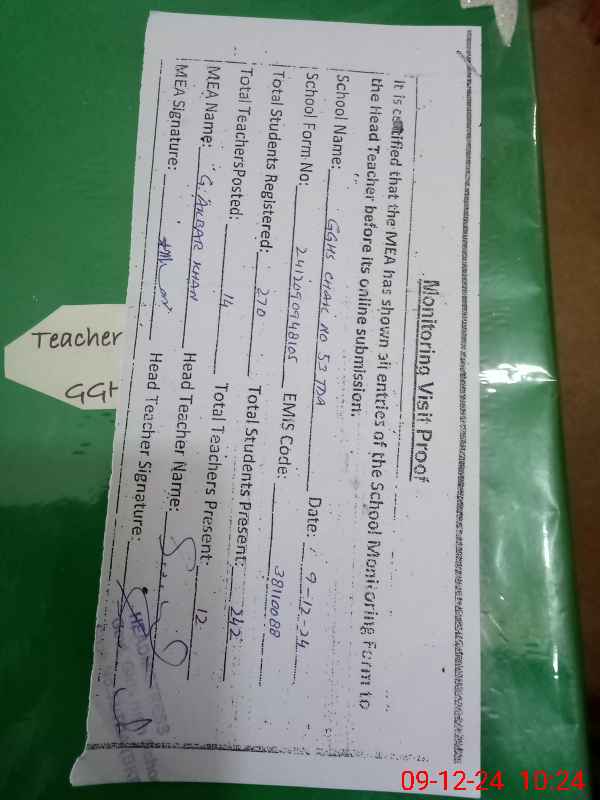 Monitoring Visit Proof
It is certified that the MEA has shown all entries of the School Monitoring Form to
the Head Teacher before its online submission.
School Name: GGHS CHAK NO 53 TDA Date: 9-12-24
School Form No: 2412090948105 EMIS Code: 38110088
Total Students Registered: 270 Total Students Present: 242
Total TeachersPosted: 14 Total Teachers Present: 12
MEA Name: G. AKBAR KHAN Head Teacher Name:
MEA Signature: Head Teacher Signature:
HEAD
Teacher
GGH
09-12-24 10:24